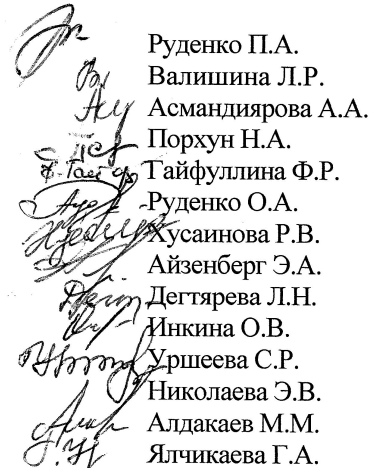 Руденко П.А.
Валишина Л.Р.
Асмандиярова А.А.
Порхун Н.А.
Гайфуллина Ф.Р.
Руденко О.А.
Хусаинова Р.В.
Айзенберг Э.А.
Дегтярева Л.Н.
Инкина О.В.
Уршеева С.Р.
Николаева Э.В.
Алдакаев М.М.
Ялчикаева Г.А.